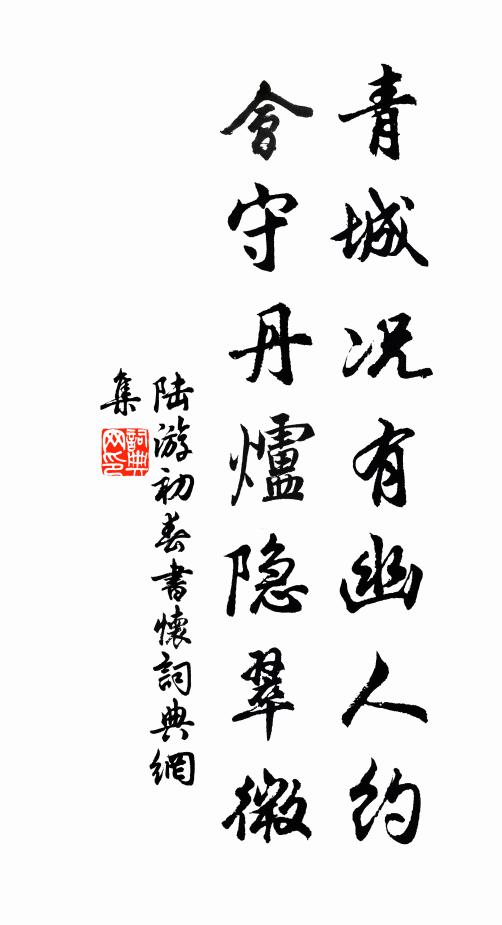 青城况有幽人约
會守丹爐隐翠微
陆游初春書懷詞典網
集
詞典
网印